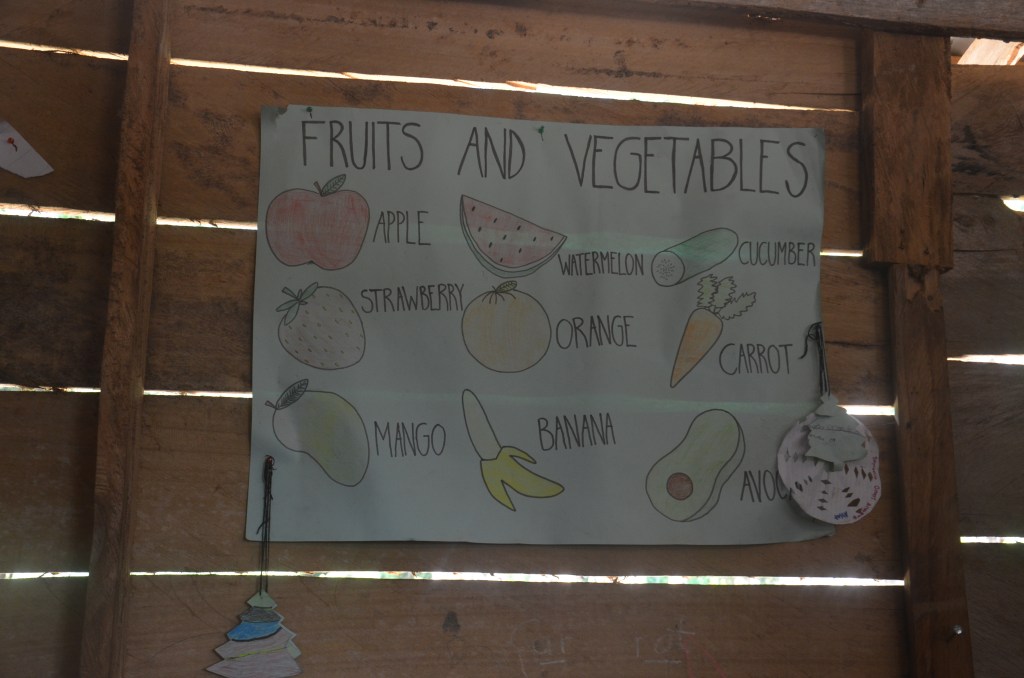 FRUITS AND VEGETABLES
APPLE
WATERMELON
CUCUMBER
STRAWBERRY
ORANGE
CARROT
MANGO
BANANA
AVOC
fur rot